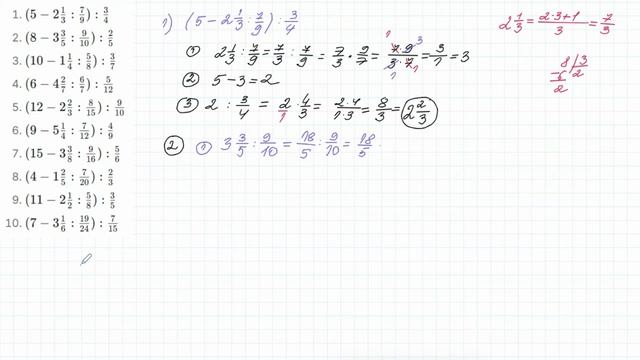 1. (5 − 2 1/3 : 7/9) : 3/4
2. (8 − 3 3/5 : 9/10) : 2/5
3. (10 − 1 1/4 : 5/8) : 3/7
4. (6 − 4 2/7 : 6/7) : 5/12
5. (12 − 2 2/3 : 8/15) : 9/10
6. (9 − 5 1/4 : 7/12) : 4/9
7. (15 − 3 3/8 : 9/16) : 5/6
8. (4 − 1 2/5 : 7/20) : 2/3
9. (11 − 2 1/2 : 5/8) : 3/5
10. (7 − 3 1/6 : 19/24) : 7/15
1) (5 − 2 1/3 : 7/9) : 3/4
① 2 1/3 : 7/9 = 7/3 : 7/9 = 7/3 · 9/7 = 7·9/3·7 = 3/1 = 3
1 3
1 1
② 5 − 3 = 2
③ 2 : 3/4 = 2/1 · 4/3 = 2·4/1·3 = 8/3 = 2 2/3
② ① 3 3/5 : 9/10 = 18/5 : 9/10 = 18/5 ·
2 1/3 = 2·3+1/3 = 7/3
8 | 3
6 | 2
2